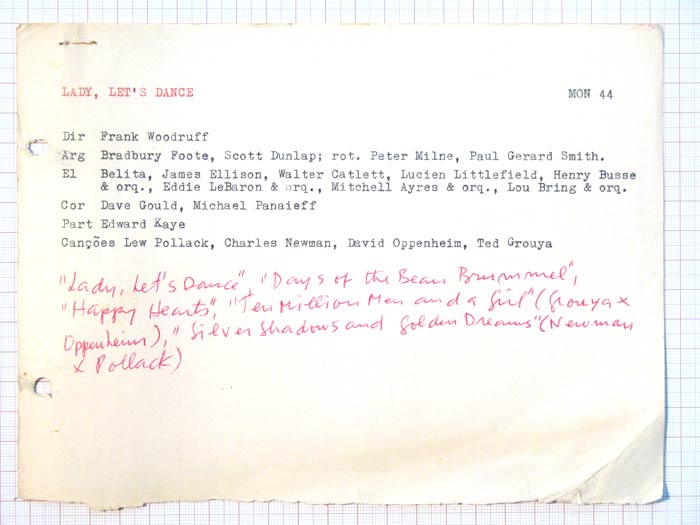 LADY, LET'S DANCE MON 44
Dir Frank Woodruff
Arg Bradbury Foote, Scott Dunlap; rot. Peter Milne, Paul Gerard Smith.
El Belita, James Ellison, Walter Catlett, Lucien Littlefield, Henry Busse
& orq., Eddie LeBaron & orq., Mitchell Ayres & orq., Lou Bring & orq.
Cor Dave Gould, Michael Panaieff
Part Edward Kaye
Canções Lew Pollack, Charles Newman, David Oppenheim, Ted Grouya
"Lady, Let's Dance", "Days of the Beau Brummel",
"Happy Hearts", "Ten Million Men and a Girl" (Grouya x
Oppenheim), "Silver Shadows and Golden Dreams" (Newman
x Pollack)